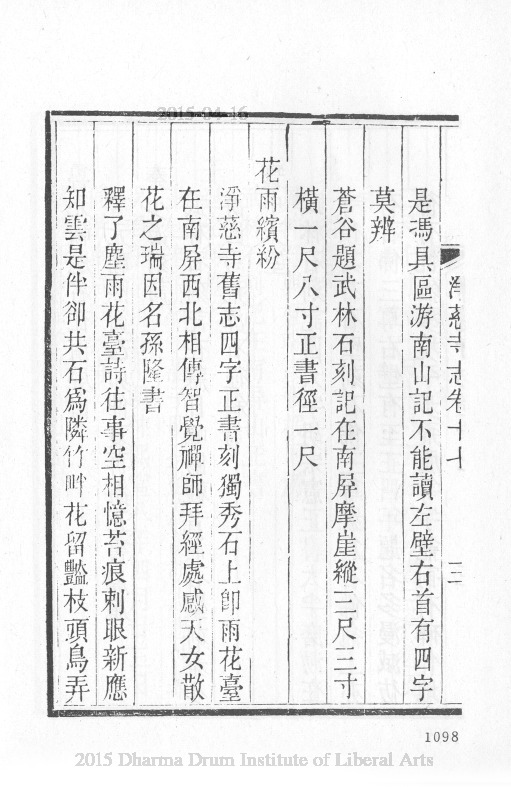 2015-04-16
淨慈寺志卷十七 三
是馮具區游南山記不能讀左壁右首有四字
莫辨
蒼谷題武林石刻記在南屏摩崖縱三尺三寸
橫一尺八寸正書徑一尺
花雨繽紛
淨慈寺舊志四字正書刻獨秀石上卽雨花臺
在南屏西北相傳智覺禪師拜經處感天女散
花之瑞因名孫隆書
釋了塵雨花臺詩往事空相憶苔痕刺眼新應
知雲是伴卻共石爲隣竹畔花留豔枝頭鳥弄
1098
2015 Dharma Drum Institute of Liberal Arts